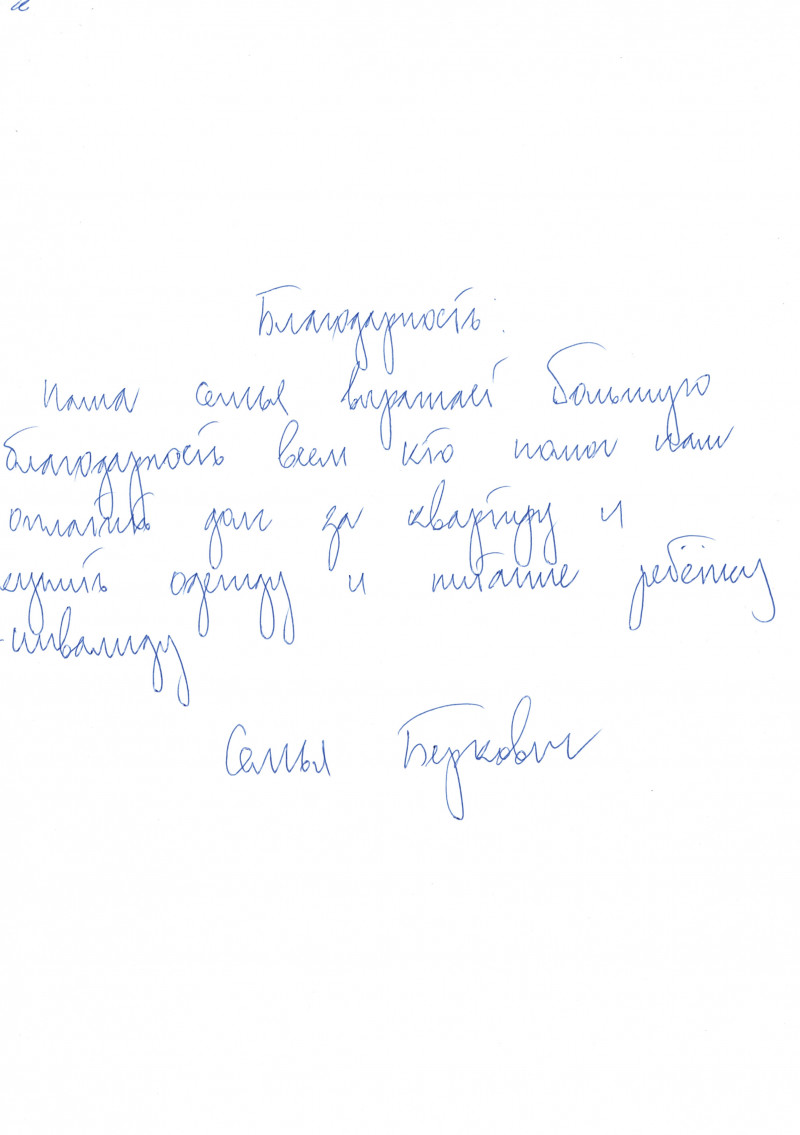 Благодарность.
Наша семья выражает большую
благодарность всем кто помог нам
оплатить долг за квартиру и
купить одежду и питание ребёнку
-инвалиду
Семья Беркович